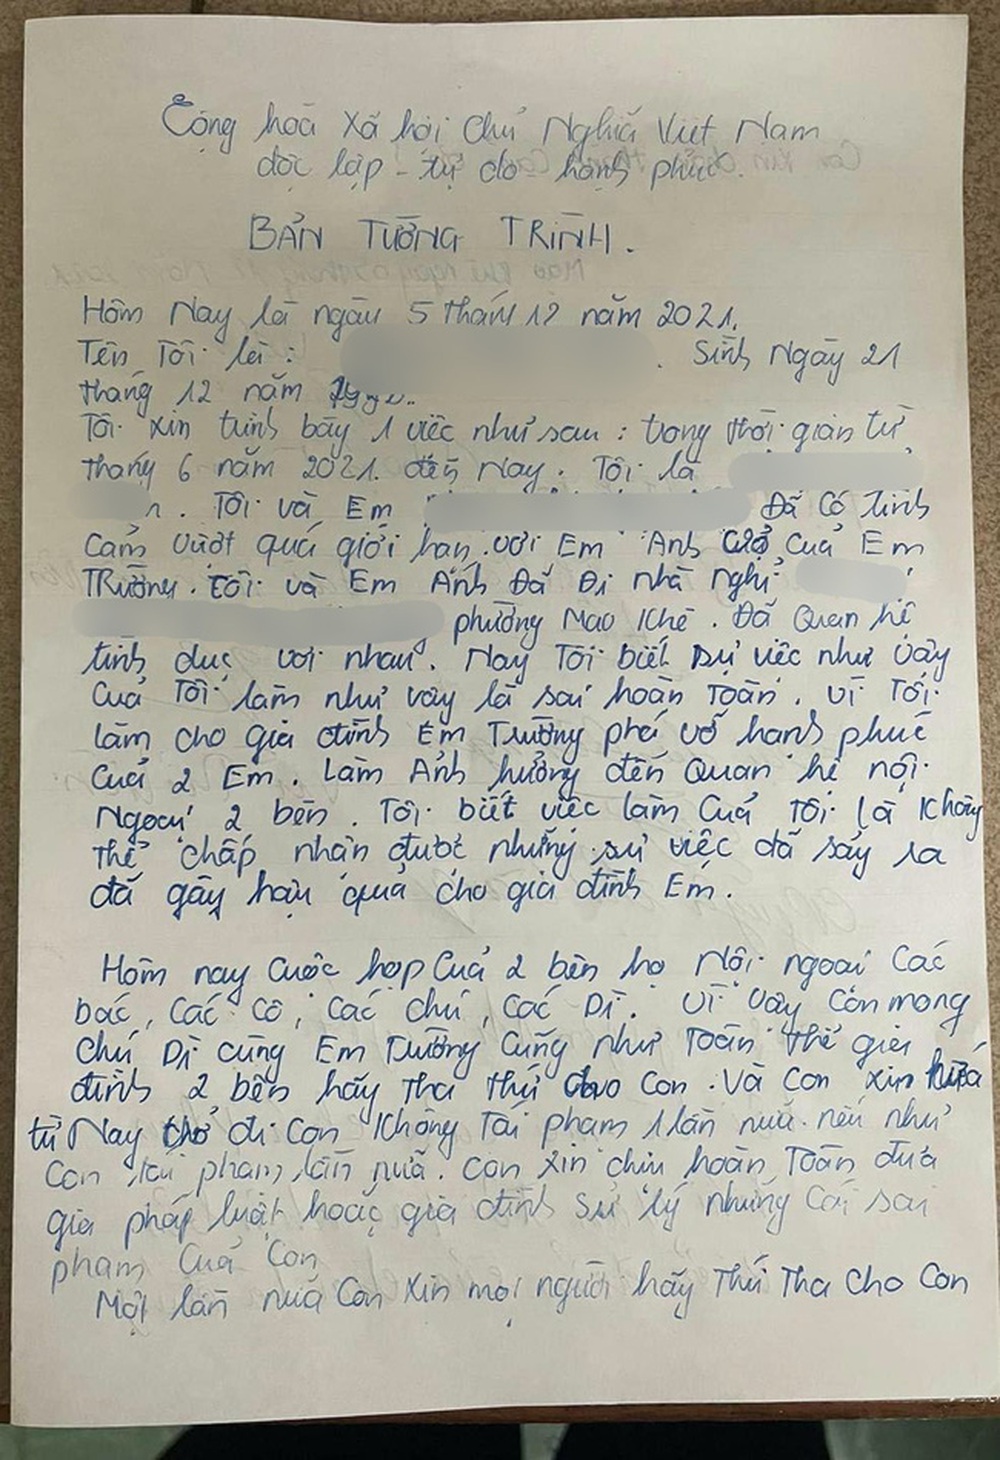 Cộng hoà Xã hội Chủ Nghĩa Việt Nam
độc lập - tự do hạnh phúc.
BẢN TƯỜNG TRÌNH.
Hôm Nay là ngày 5 tháng 12 năm 2021.
Tên Tôi là : . Sinh Ngày 21
tháng 12 năm
Tôi xin trình bày 1 việc như sau : trong thời gian từ
tháng 6 năm 2021. đến Nay. Tôi là
n. Tôi và Em Đã Có tình
Cảm vượt quá giới hạn với Em Ánh Của Em
TRường. Tôi và Em Ánh Đã Đi nhà nghỉ
phường Mạo Khê. Đã Quan hệ
tình dục với nhau. Nay Tôi biết sự việc như vậy
Của Tôi làm như vậy là sai hoàn toàn. vì Tôi
làm cho gia đình Em Trường phá vỡ hạnh phúc
Của 2 Em. Làm Ảnh hưởng đến Quan hệ nội
Ngoại 2 bên. Tôi biết việc làm Của Tôi là Không
thể chấp nhận được những sự việc đã sảy ra
đã gây hậu quả cho gia đình Em.
Hôm nay Cuộc họp Của 2 bên họ Nội ngoại Các
bác, Các Cô, Các Chú, Các Dì. Vì vậy Con mong
Chú Dì cùng Em Trường Cũng như Toàn thể gia
đình 2 bên hãy Tha thứ cho Con. Và Con xin hứa
từ Nay trở đi Con Không Tái phạm 1 lần nữa. nếu như
Con tái phạm lần nữa. Con xin chịu hoàn Toàn đưa
gia pháp luật hoặc gia đình sử lý những Cái sai
phạm Của Con
Một lần nữa Con Xin mọi người hãy Thứ Tha Cho Con